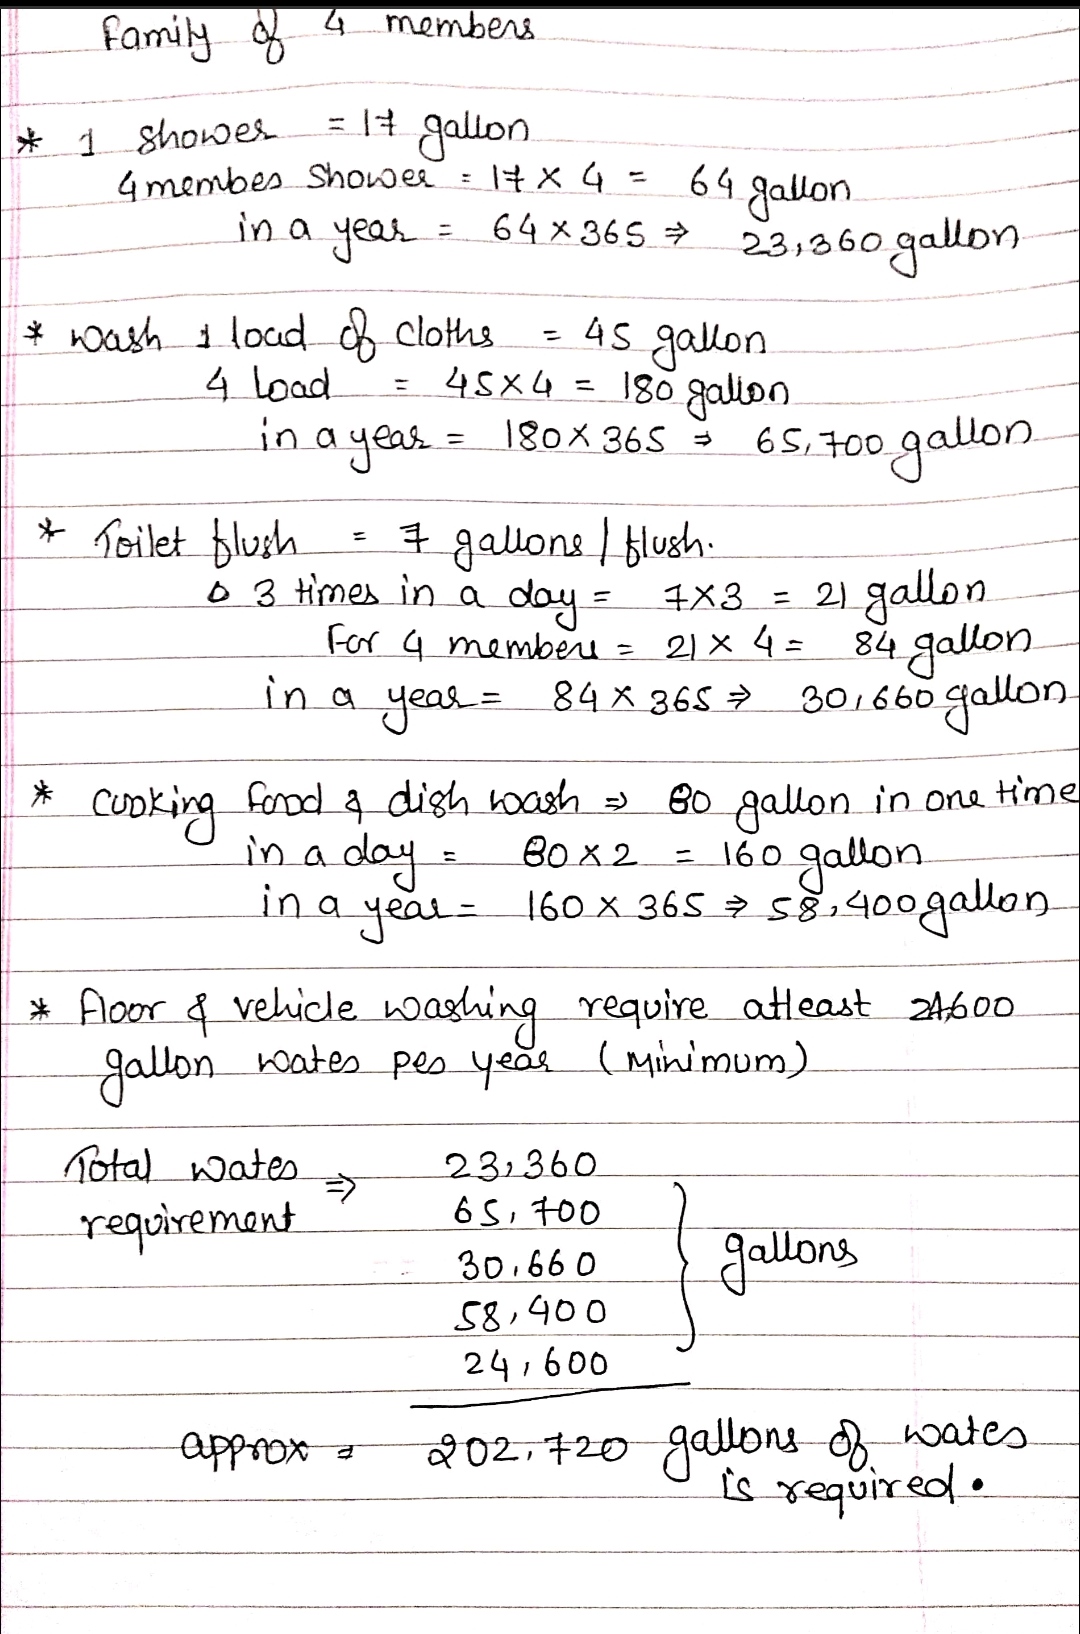 Family of 4 members
* 1 shower = 17 gallon
4 member shower = 17 × 4 = 64 gallon
in a year = 64 × 365 ⇒ 23,360 gallon
* wash 1 load of cloths = 45 gallon
4 load = 45×4 = 180 gallon
in a year = 180 × 365 ⇒ 65,700 gallon
* Toilet flush = 7 gallons / flush.
3 times in a day = 7×3 = 21 gallon
For 4 members = 21 × 4 = 84 gallon
in a year = 84 × 365 ⇒ 30,660 gallon
* cooking food & dish wash ⇒ 80 gallon in one time
in a day = 80 × 2 = 160 gallon
in a year = 160 × 365 ⇒ 58,400 gallon
* floor & vehicle washing require atleast 24600
gallon water per year (Minimum)
Total water requirement ⇒ 23,360
65,700
30,660 gallons
58,400
24,600
approx = 202,720 gallons of water
is required.